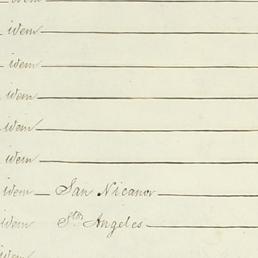 idem
idem
idem
idem
idem
idem
idem San Nicanor
idem Stos Angeles
idem